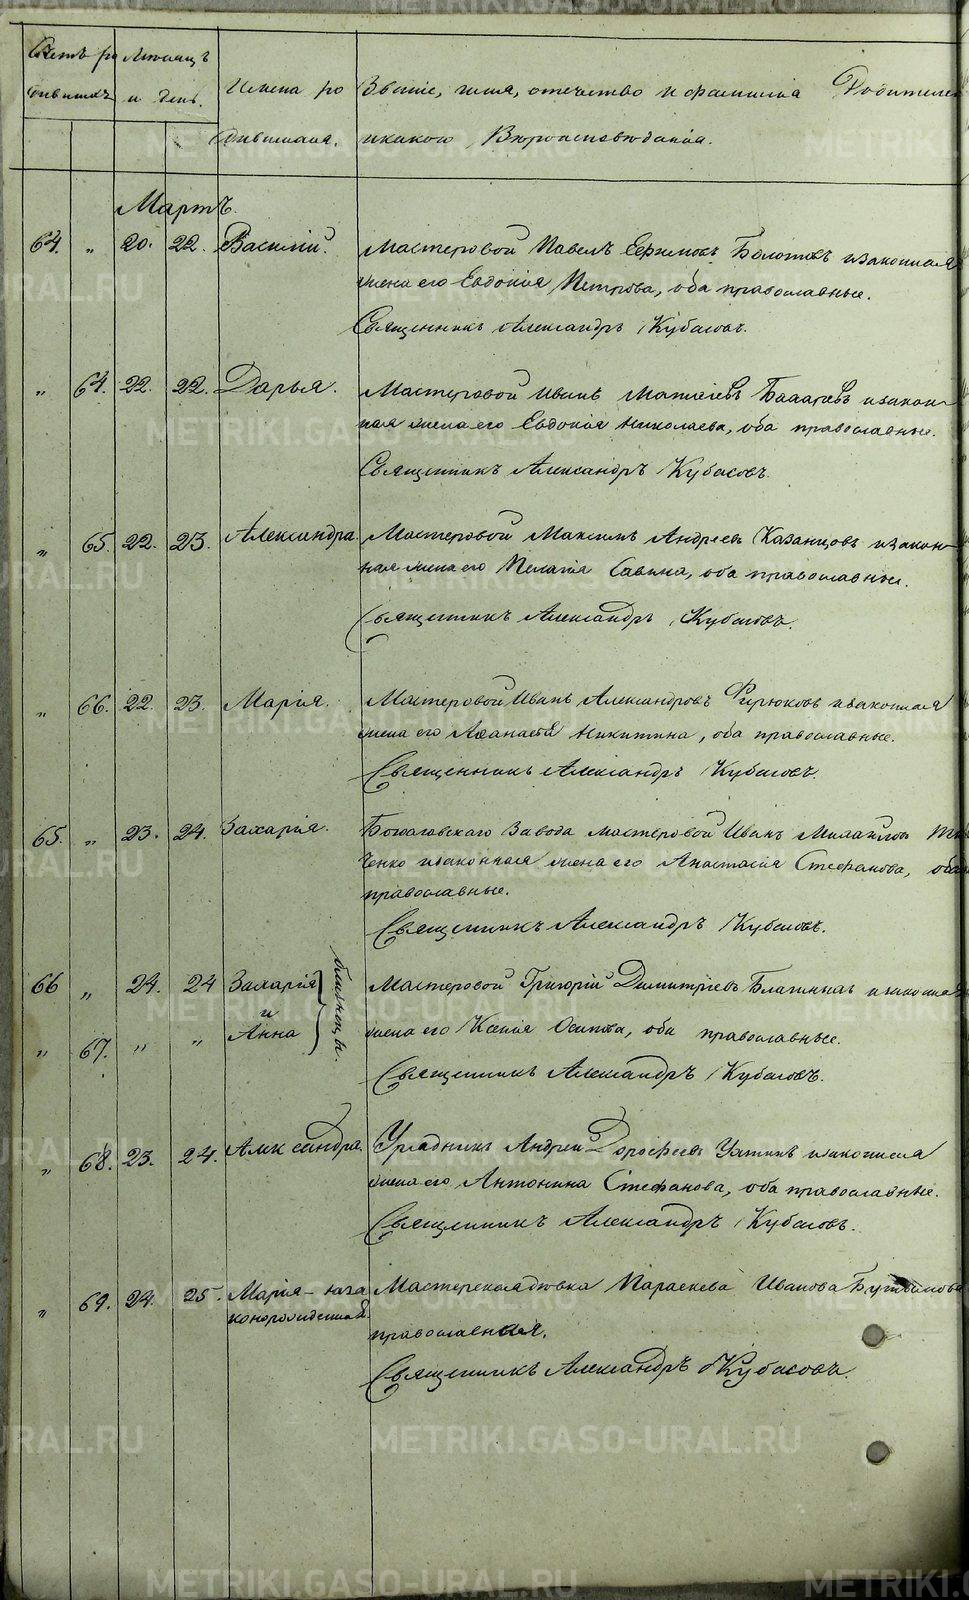 Счетъ ро Мѣсяцъ
дившихъ и день. Имена ро Званіе, имя, отечество и фамилія Родителей
дившихся. и какого Вѣроисповѣданія.
Мартъ.
64. " 20. 22. Василій. Мастеровой Павелъ Ефимовъ Болотовъ и законная
жена его Евдокія Петрова, оба православные.
Священникъ Александръ Кубасовъ.
" 64. 22. 22. Дарья. Мастеровой Иванъ Матвѣевъ и закон-
ная жена его Евдокія Николаева, оба православные.
Священникъ Александръ Кубасовъ.
" 65. 22. 23. Александра. Мастеровой Максимъ Андреевъ Казанцовъ и закон-
ная жена его Пелагія Савина, оба православные.
Священникъ Александръ Кубасовъ.
" 66. 22. 23. Марія. Мастеровой Иванъ Александровъ и законная
жена его Никитина, оба православные.
Священникъ Александръ Кубасовъ.
65. " 23. 24. Захарія. Богословскаго Завода мастеровой Иванъ Михайловъ
ченко и законная жена его Анастасія Стефанова, оба
православные.
Священникъ Александръ Кубасовъ.
66 " 24. 24 Захарія близнецы. Мастеровой Григорій Димитріевъ и законная
и
" 67. " " Анна жена его Ксенія Осипова, оба православные.
Священникъ Александръ Кубасовъ.
" 68. 23. 24. Александра. Урядникъ Андрей Дорофеевъ и законная
жена его Антонина Стефанова, оба православные.
Священникъ Александръ Кубасовъ.
" 69. 24. 25. Марія - неза Мастерская девка Параскева Иванова
коннорожденная. православная.
Священникъ Александръ Кубасовъ.
METRIKI.GASO-URAL.RU